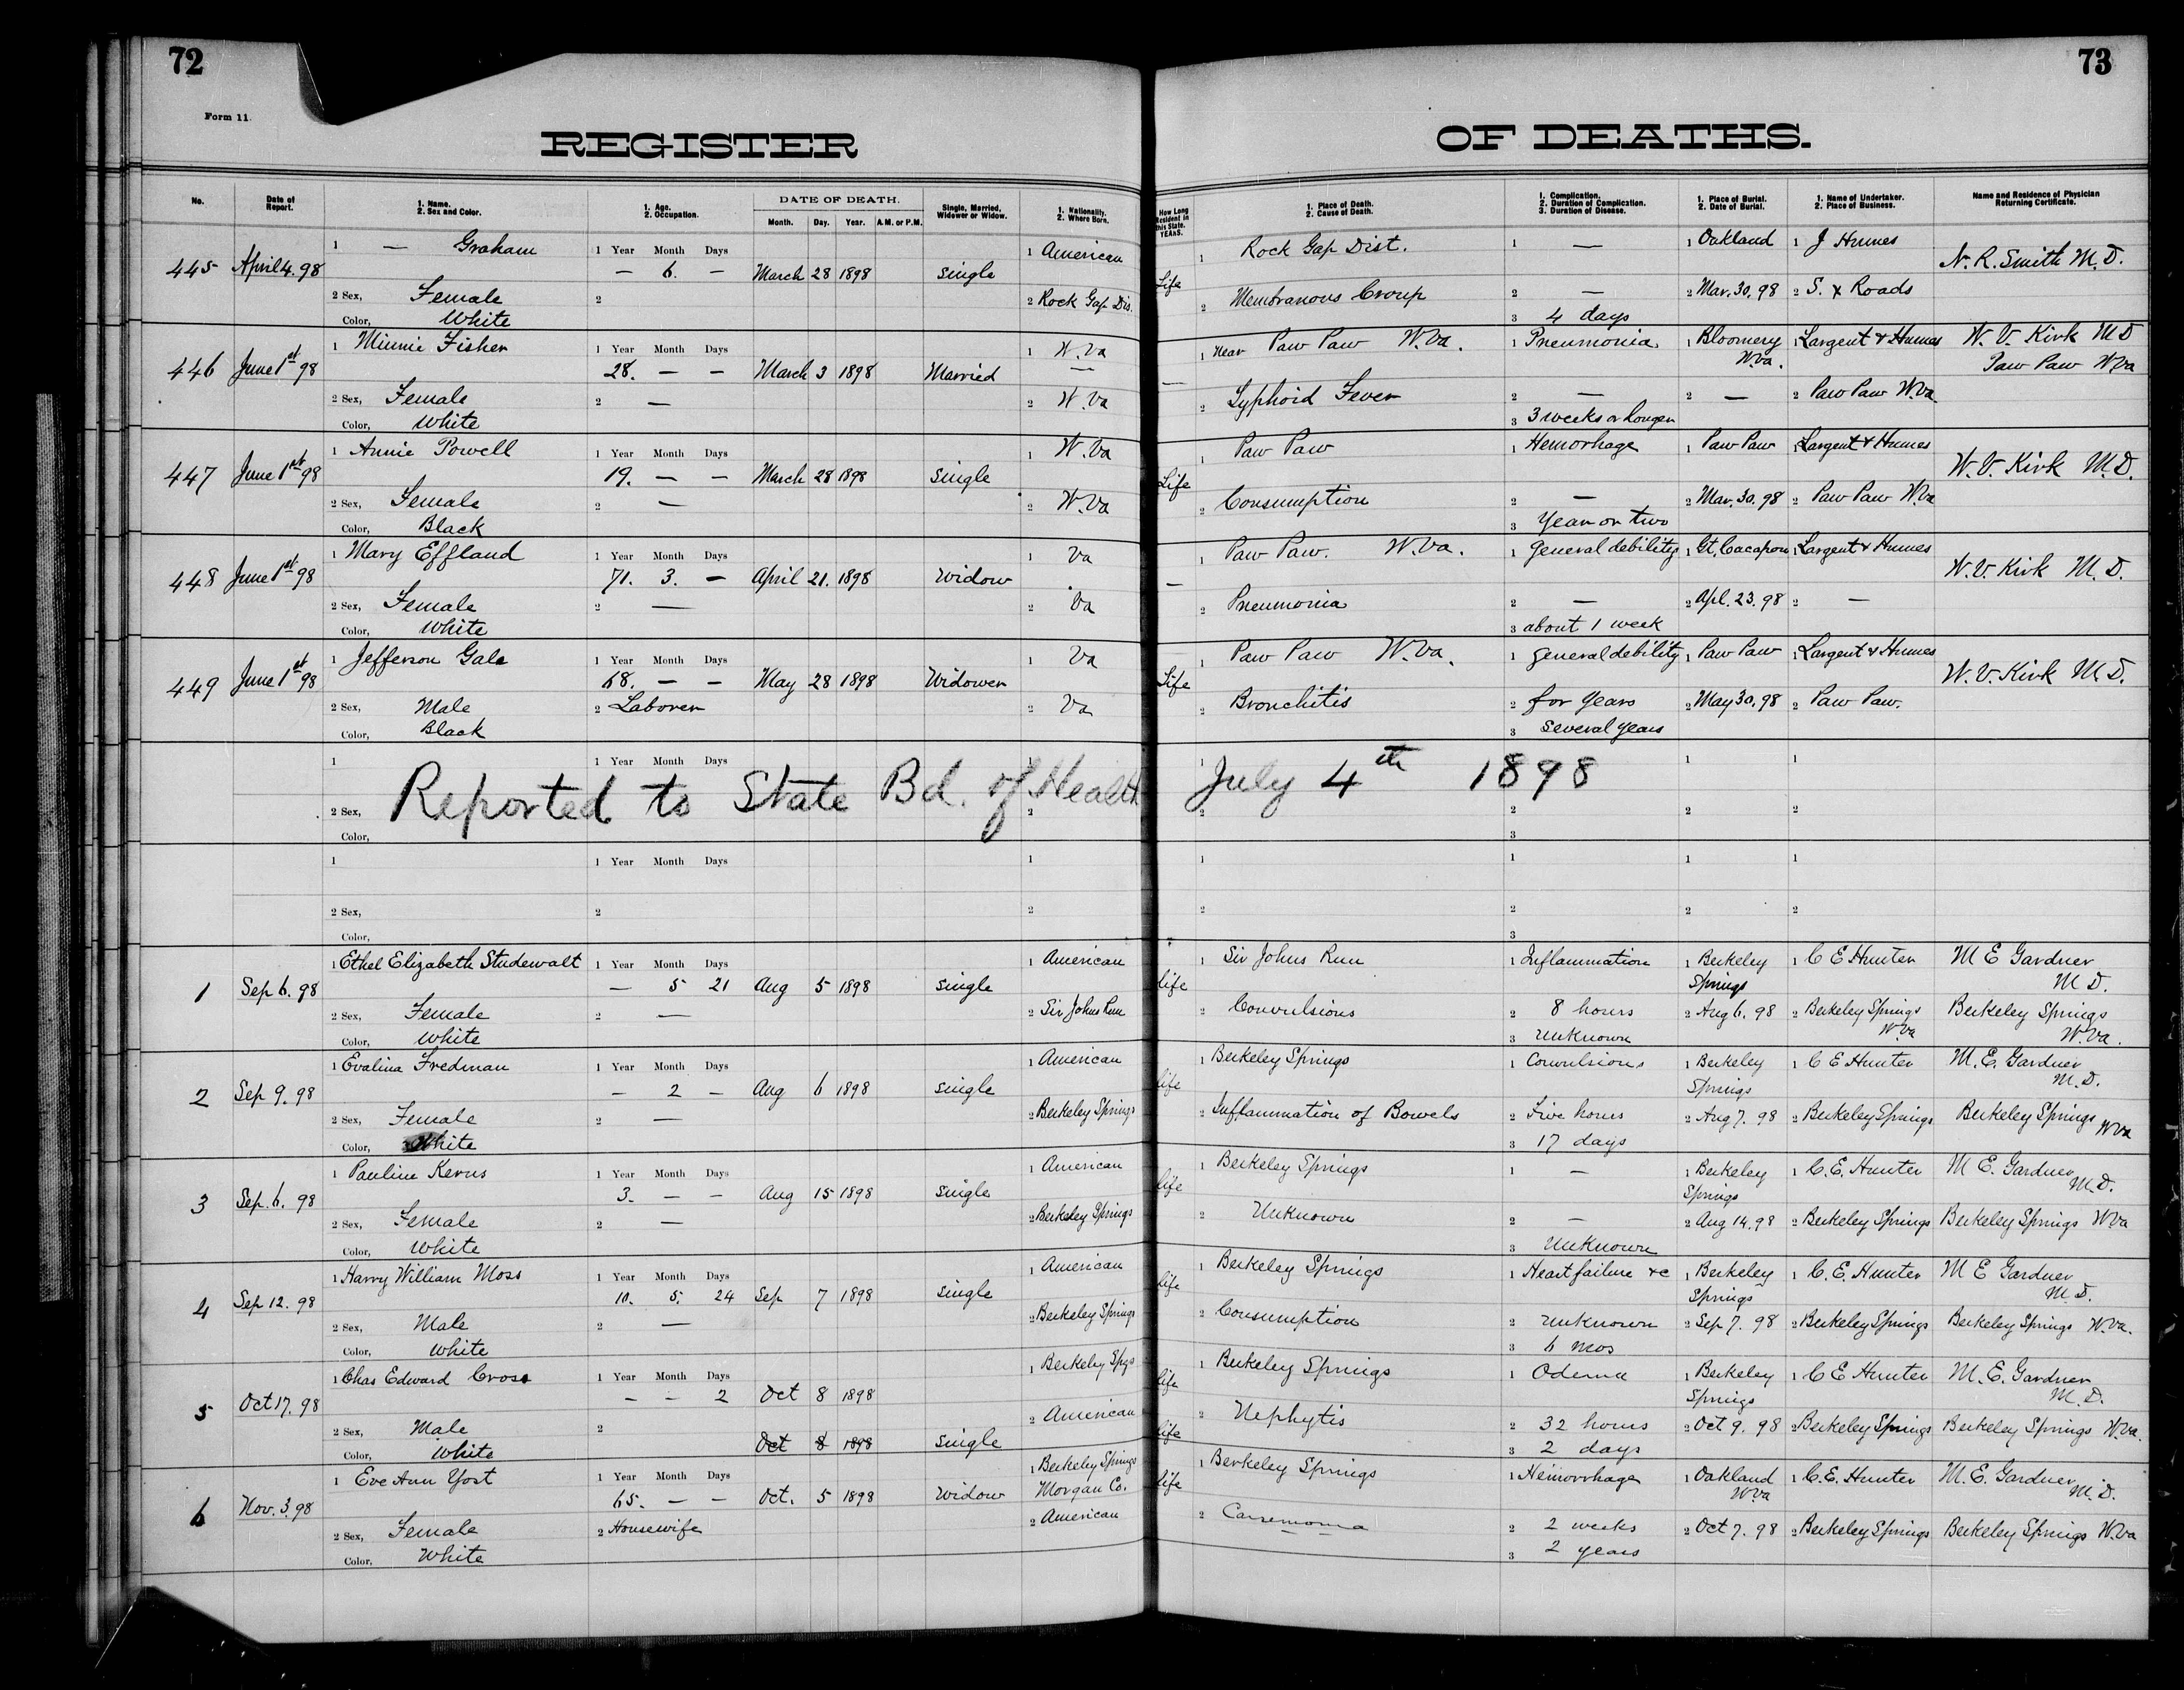 72
73
Form 11.
REGISTER OF DEATHS.
No. Date of Report. 1. Name. 2. Sex and Color. 1. Age. 2. Occupation. DATE OF DEATH. Month. Day. Year. A.M. or P.M. Single, Married, Widower or Widow. 1. Nationality. 2. Where Born. How Long Resident in this State. YEARS. 1. Place of Death. 2. Cause of Death. 1. Complication. 2. Duration of Complication. 3. Duration of Disease. 1. Place of Burial. 2. Date of Burial. 1. Name of Undertaker. 2. Place of Business. Name and Residence of Physician Returning Certificate.
1 — Graham 1 Year Month Days 1 American 1 Rock Gap Dist. 1 — 1 Oakland 1 J Humes
445 April 4. 98 — 6. — March 28 1898 single Life N. R. Smith M. D.
2 Sex, Female 2 2 Rock Gap Dis. 2 Membranous Croup 2 — 2 Mar. 30, 98 2 S. X Roads
Color, White 3 4 days
1 Minnie Fisher 1 Year Month Days 1 W. Va 1 near Paw Paw W. Va. 1 Pneumonia 1 Bloomery W.va. 1 Largent & Humes W. V. Kirk M D
446 June 1st 98 28. — — March 3 1898 Married — — Paw Paw W va
2 Sex, Female 2 — 2 W. Va 2 Typhoid Fever 2 — 2 — 2 Paw Paw W.va
Color, White 3 3 weeks or longer
1 Annie Powell 1 Year Month Days 1 W. Va 1 Paw Paw 1 Hemorhage 1 Paw Paw 1 Largent & Humes
447 June 1st 98 19. — — March 28 1898 single Life W. V. Kirk M. D.
2 Sex, Female 2 — 2 W. Va 2 Consumption 2 — 2 Mar. 30, 98 2 Paw Paw W.va
Color, Black 3 Year or two
1 Mary Effland 1 Year Month Days 1 Va 1 Paw Paw. W. Va. 1 general debility 1 Gt. Cacapon 1 Largent & Humes
448 June 1st 98 71. 3. — April 21. 1898 Widow — W. V. Kirk M. D.
2 Sex, Female 2 — 2 Va 2 Pneumonia 2 — 2 Apl. 23. 98 2 —
Color, White 3 about 1 week
1 Jefferson Gale 1 Year Month Days 1 Va 1 Paw Paw W. Va. 1 general debility 1 Paw Paw 1 Largent & Humes
449 June 1st 98 68. — — May 28 1898 Widower Life W. V. Kirk M. D.
2 Sex, Male 2 Laborer 2 Va 2 Bronchitis 2 for years 2 May 30, 98 2 Paw Paw.
Color, Black 3 Several years
1 1 Year Month Days 1 1 1 1
Reported to State Bd. of Health July 4th 1898
2 Sex, 2 2 2 2 2
Color, 3
1 1 Year Month Days 1 1 1 1 1
2 Sex, 2 2 2 2 2 2
Color, 3
1 Ethel Elizabeth Studewalt 1 Year Month Days 1 American 1 Sir Johns Run 1 Inflammation 1 Berkeley Springs 1 C E Hunter M E Gardner M D.
1 Sep 6. 98 — 5 21 Aug 5 1898 single life
2 Sex, Female 2 — 2 Sir Johns Run 2 Convulsions 2 8 hours 2 Aug 6. 98 2 Berkeley Springs W va Berkeley Springs W. Va.
Color, White 3 Unknown
1 Evalina Fredman 1 Year Month Days 1 American 1 Berkeley Springs 1 Convulsions 1 Berkeley Springs 1 C E Hunter M. E. Gardner M. D.
2 Sep 9. 98 — 2 — Aug 6 1898 single life
2 Sex, Female 2 — 2 Berkeley Springs 2 Inflammation of Bowels 2 Five hours 2 Aug 7. 98 2 Berkeley Springs Berkeley Springs W va
Color, White 3 17 days
1 Pauline Kerns 1 Year Month Days 1 American 1 Berkeley Springs 1 — 1 Berkeley Springs 1 C. E. Hunter M E. Gardner M. D.
3 Sep. 6. 98 3. — — Aug 15 1898 single life
2 Sex, Female 2 — 2 Berkeley Springs 2 Unknown 2 — 2 Aug 14. 98 2 Berkeley Springs Berkeley Springs W.va
Color, White 3 Unknown
1 Harry William Moss 1 Year Month Days 1 American 1 Berkeley Springs 1 Heart failure &c 1 Berkeley Springs 1 C. E. Hunter M E Gardner M. D.
4 Sep 12. 98 10. 5. 24 Sep 7 1898 single life
2 Sex, Male 2 — 2 Berkeley Springs 2 Consumption 2 Unknown 2 Sep 7. 98 2 Berkeley Springs Berkeley Springs W. Va.
Color, White 3 6 mos
1 Chas Edward Cross 1 Year Month Days 1 Berkeley Spgs 1 Berkeley Springs 1 Odema 1 Berkeley Springs 1 C E Hunter M. E. Gardner M. D.
5 Oct 17. 98 — — 2 Oct 8 1898 life
2 Sex, Male 2 2 American 2 Nephytis 2 32 hours 2 Oct 9. 98 2 Berkeley Springs Berkeley Springs W. Va.
Color, White Oct 8 1898 single life 3 2 days
1 Eve Ann Yost 1 Year Month Days 1 Berkeley Springs 1 Berkeley Springs 1 Hemorrhage 1 Oakland W va 1 C. E. Hunter M. E. Gardner M. D.
6 Nov. 3. 98 65. — — Oct. 5 1898 Widow Morgan Co. life
2 Sex, Female 2 Housewife 2 American 2 Carsemoma 2 2 weeks 2 Oct 7. 98 2 Berkeley Springs Berkeley Springs W. Va
Color, White 3 2 years